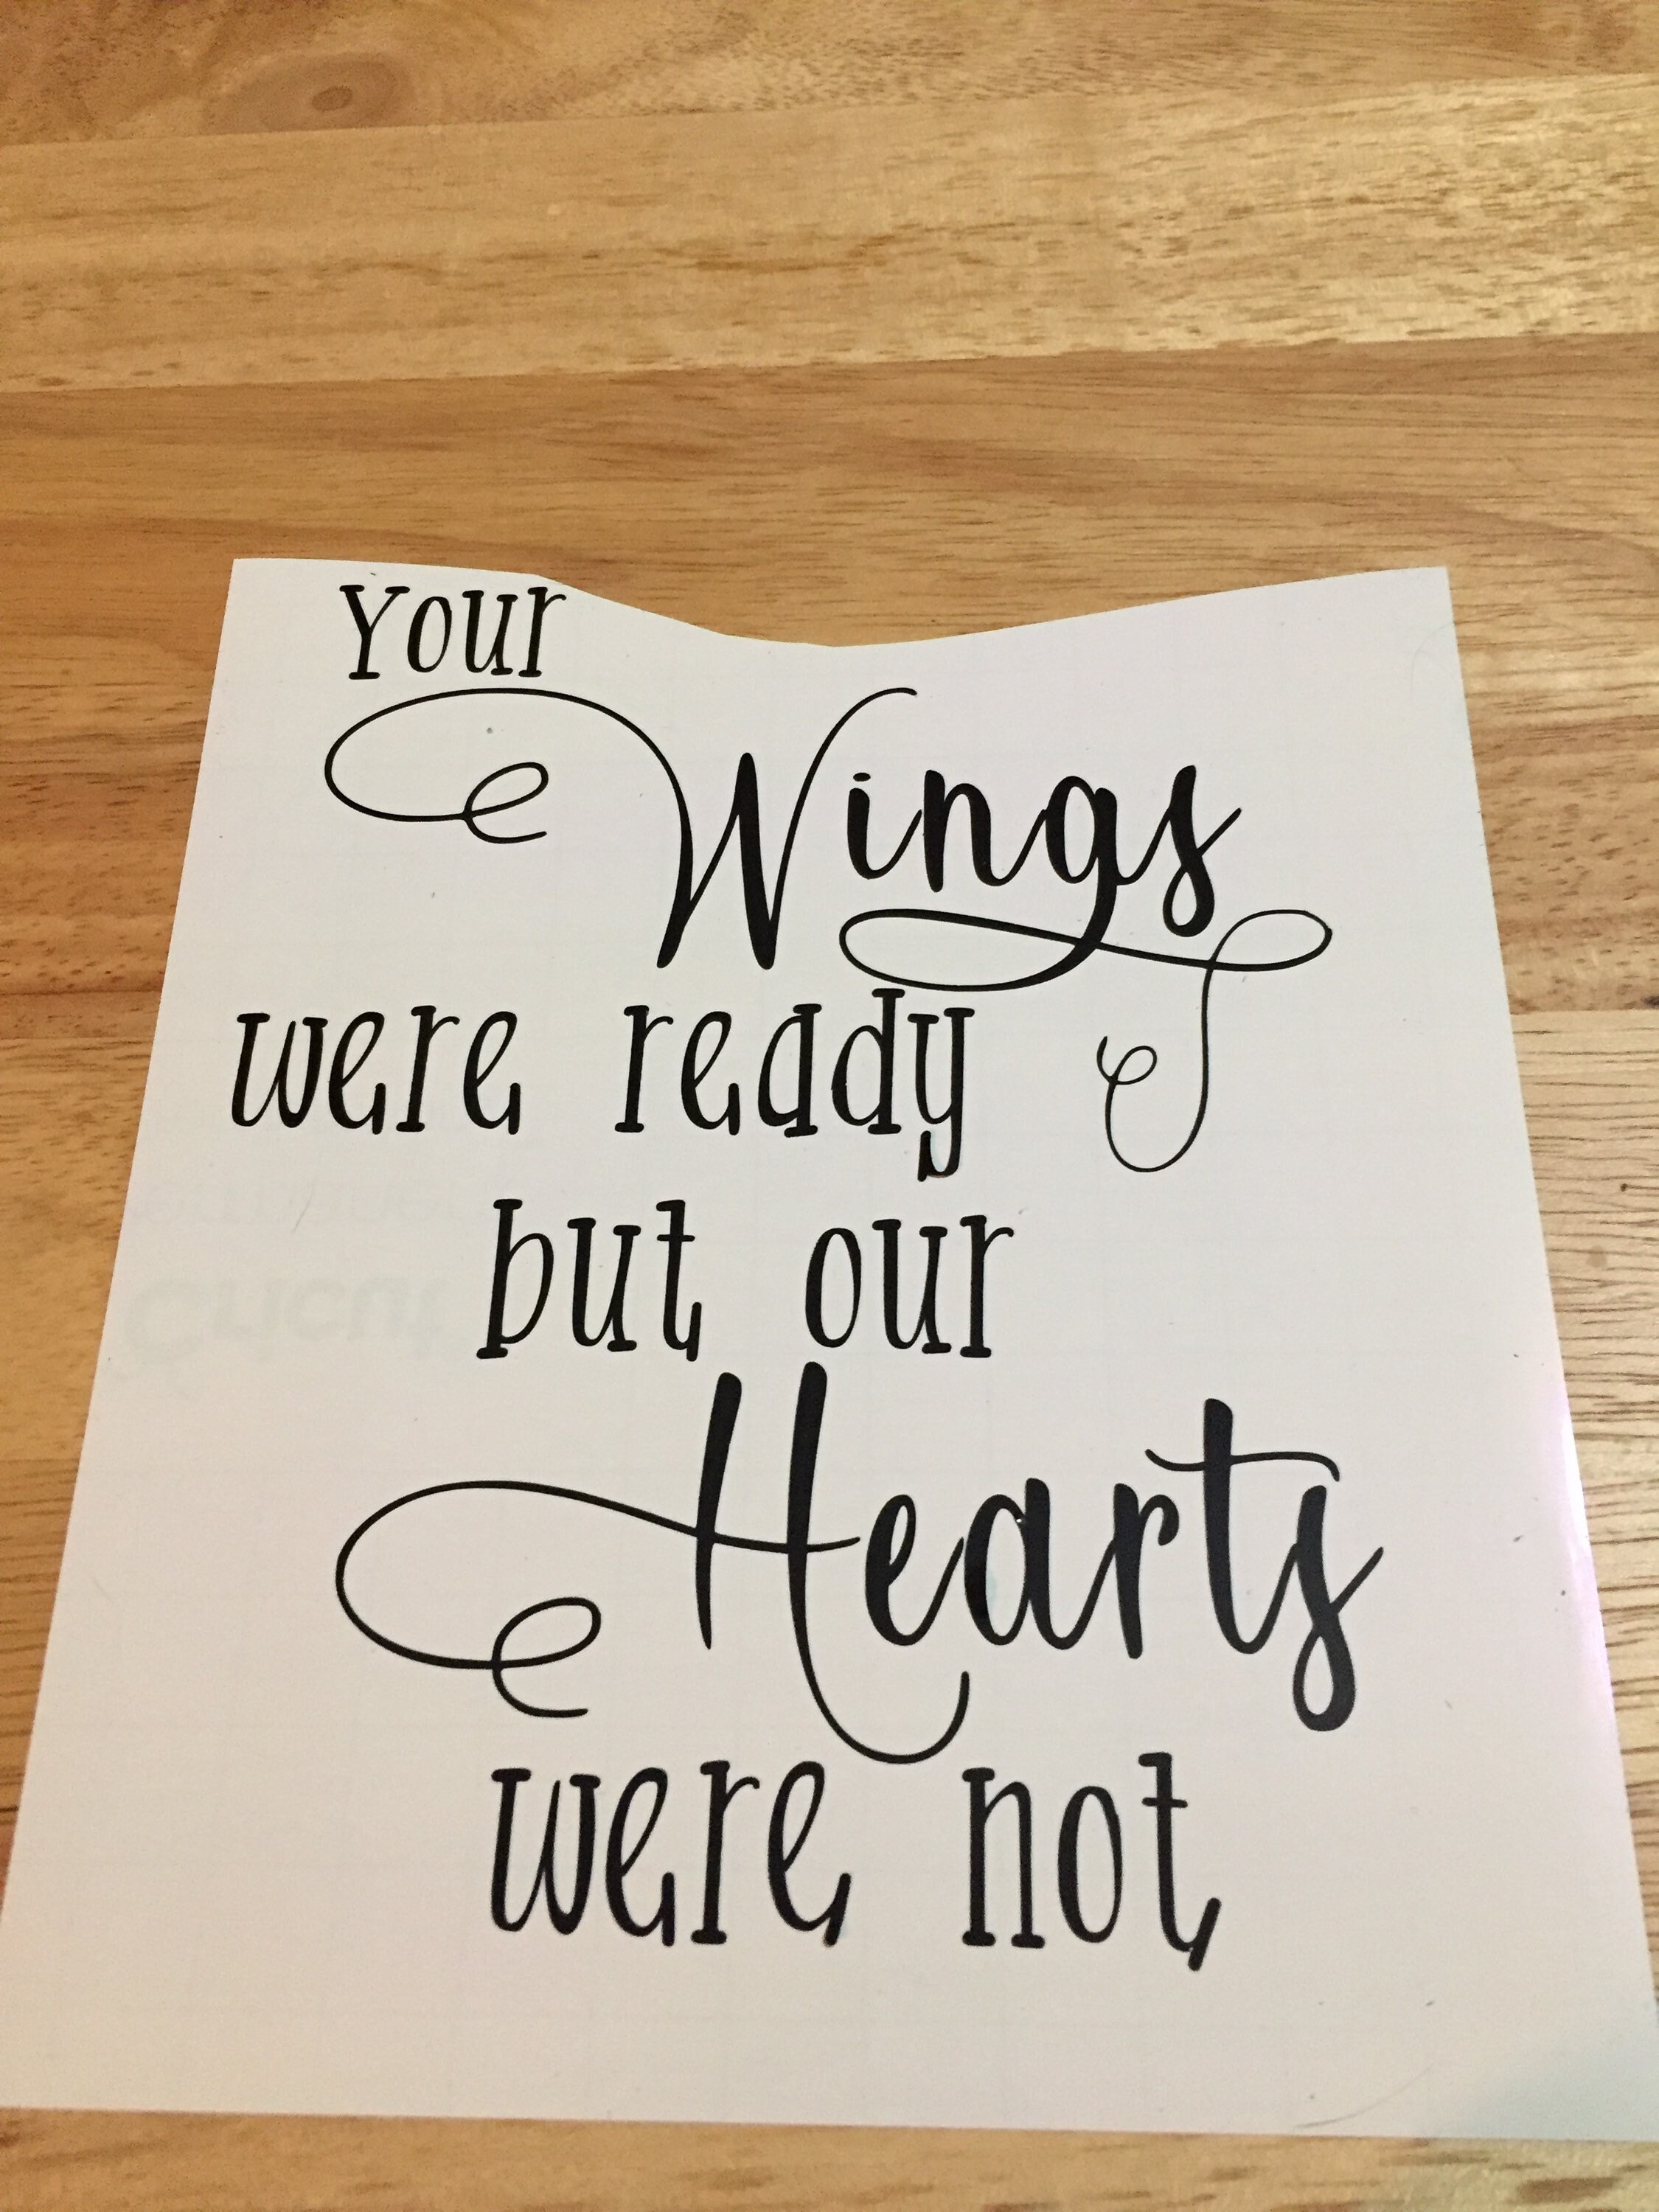 Your
Wings
were ready
but our
Hearts
were not
Cricut